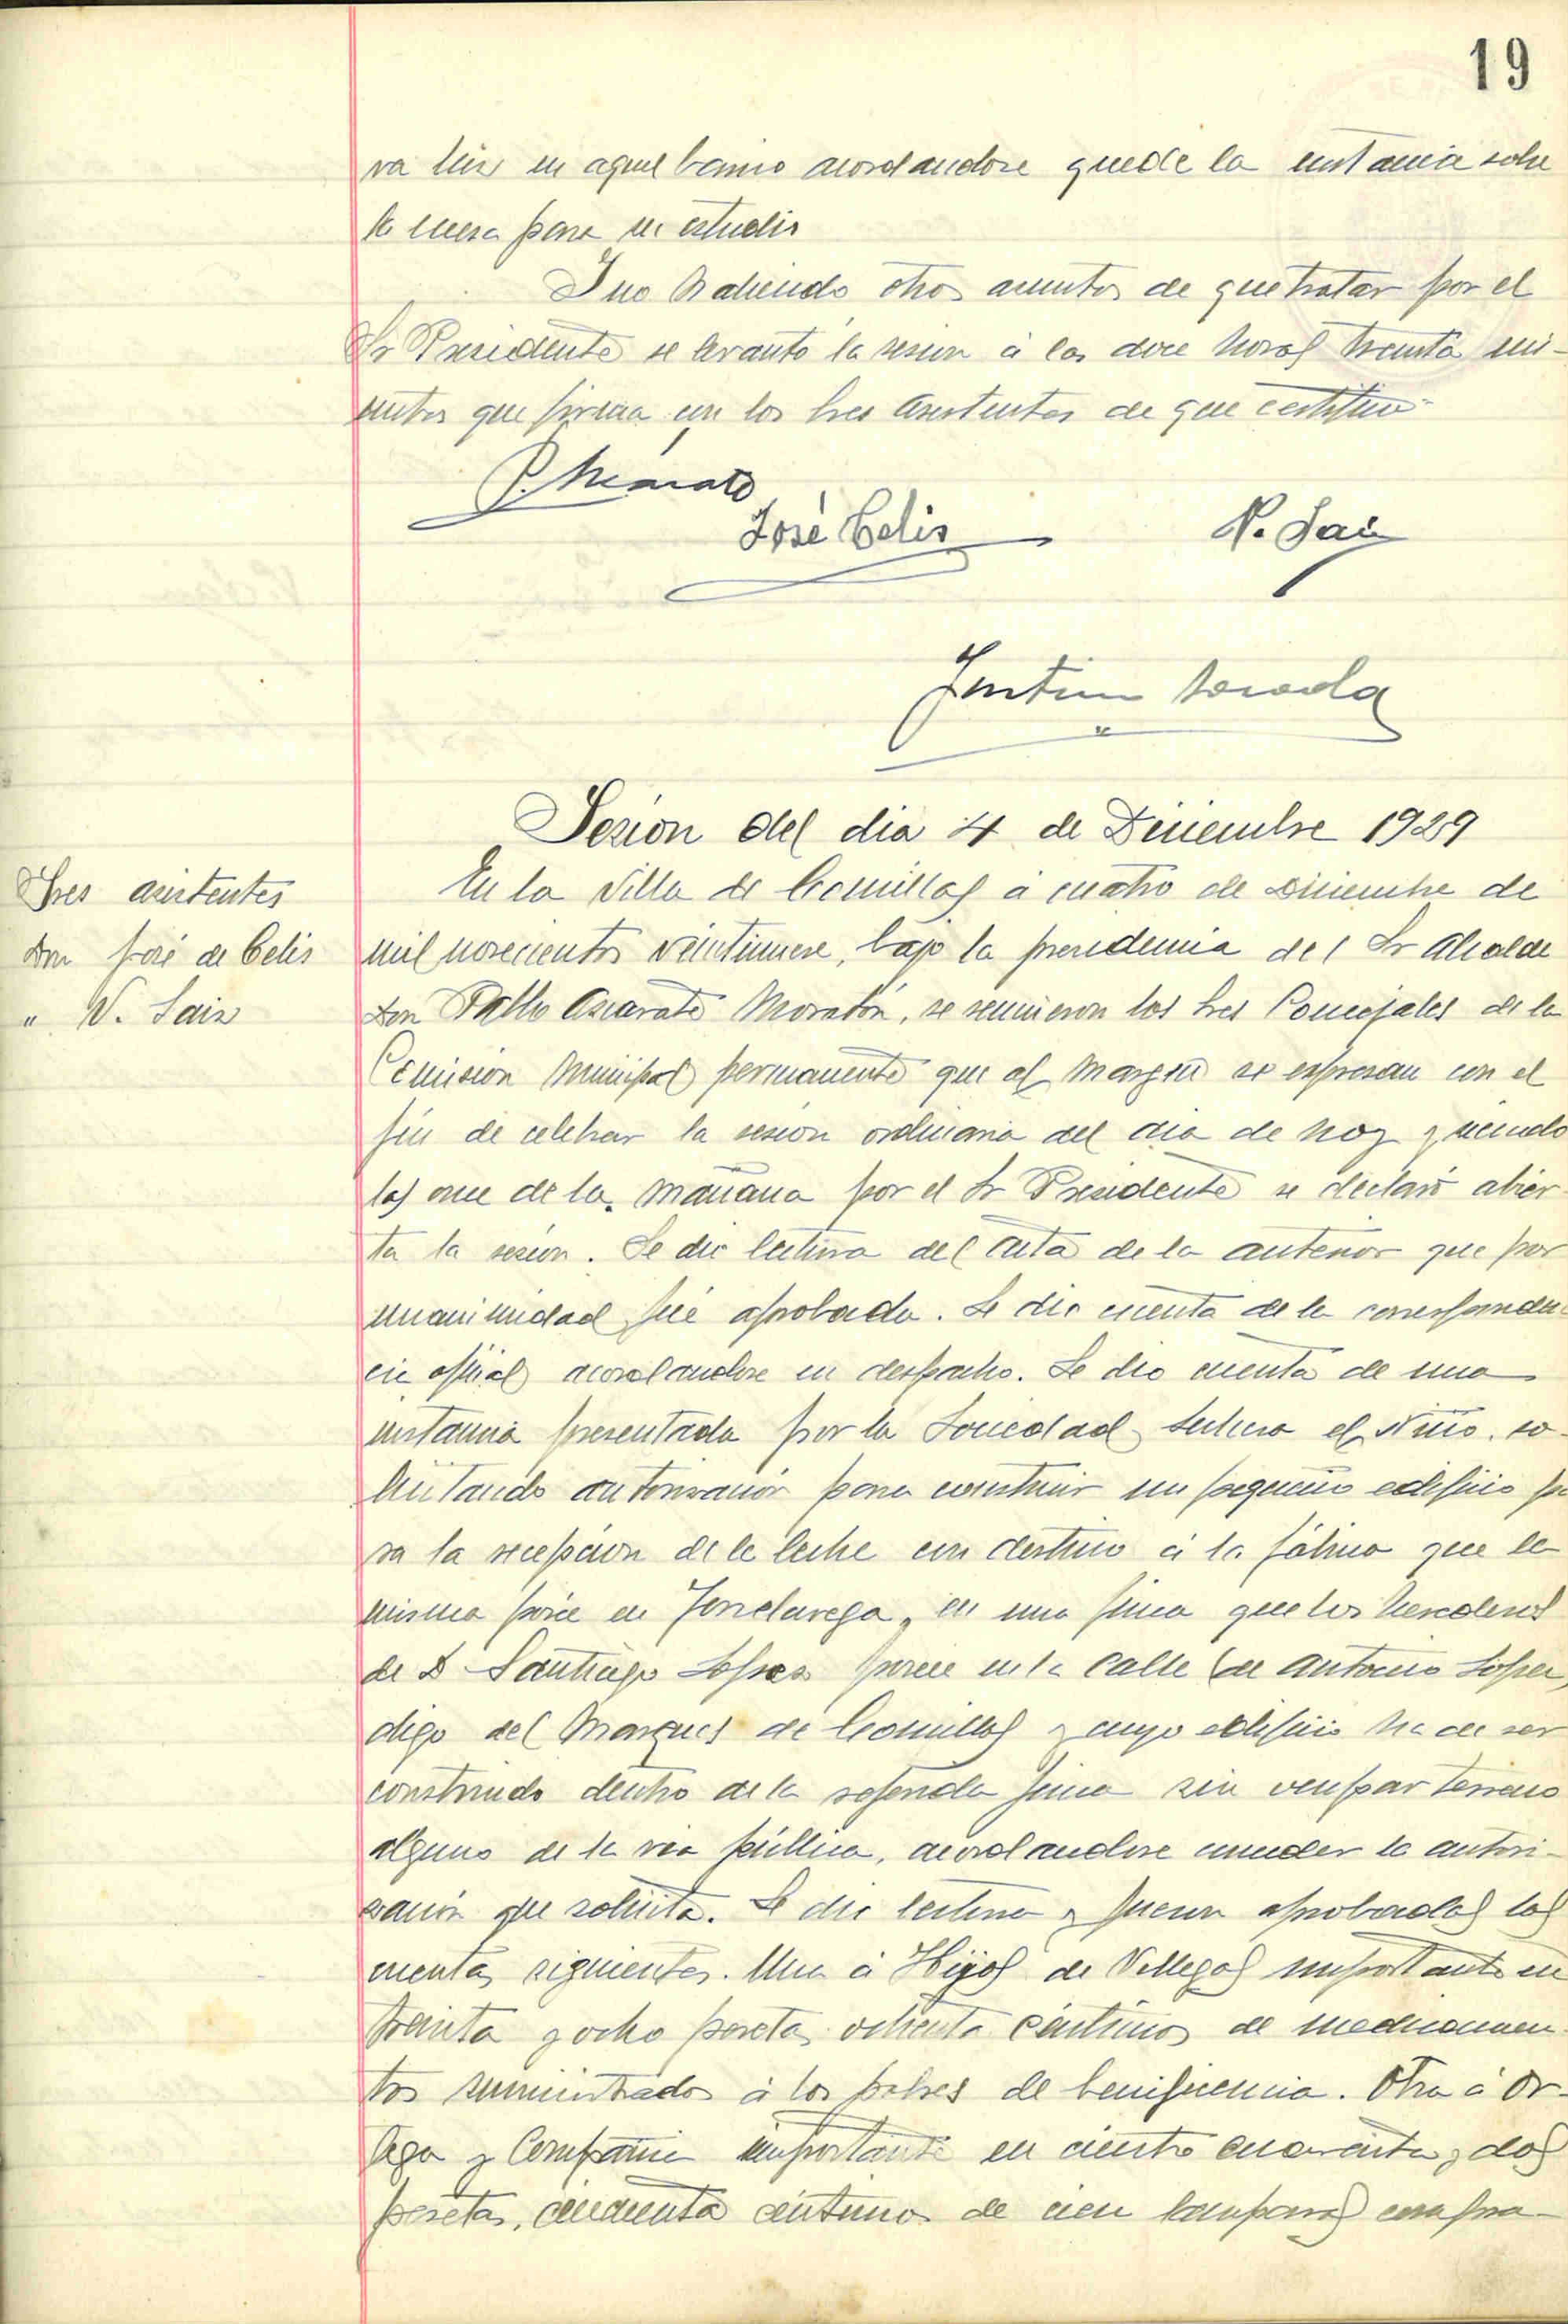 19
ra luz en aquel barrio acordandose quede la instancia sobre
la mesa para su estudio
Y no habiendo otros asuntos de que tratar por el
Sr Presidente se levantó la sesion á las doce horas treinta mi-
nutos que firma con los Sres asistentes de que certifico-
José Celis
V. Saiz
Sesion del dia 4 de Diciembre 1929
Sres asistentes
Don José de Celis
" V. Saiz
En la Villa de Comillas á cuatro de Diciembre de
mil novecientos veintinueve, bajo la presidencia del Sr Alcalde
Don Pablo Morato, se reunieron los Sres Concejales de la
Comision Municipal permanente que al margen se expresan con el
fin de celebrar la sesion ordinaria del dia de hoy y siendo
las once de la mañana por el Sr Presidente se declaró abier-
ta la sesion. Se dio lectura del acta de la anterior que por
unanimidad fué aprobada. Se dio cuenta de la corresponden-
cia oficial acordandose su despacho. Se dio cuenta de una
instancia presentada por la Sociedad Lechera el Niño, so-
licitando autorizacion para construir un pequeño edificio pa
ra la recepcion de la leche con destino á la fábrica que la
misma posee en Torrelavega, en una finca que los herederos
de D Santiago Lopez posee en la Calle de Antonio Lopez,
digo del Marques de Comillas y cuyo edificio ha de ser
construido dentro de la referida finca sin ocupar terreno
alguno de la via pública, acordandose conceder la autori-
zación que solicita. Se dio lectura y fueron aprobadas las
cuentas siguientes. Una á Hijos de Villegas importante en
treinta y ocho pesetas ochenta céntimos de medicamen-
tos suministrados á los pobres de benificencia. Otra á Or-
tega y Compañia importante en ciento cuarenta y dos
pesetas, cincuenta centimos de cien lamparas compra-